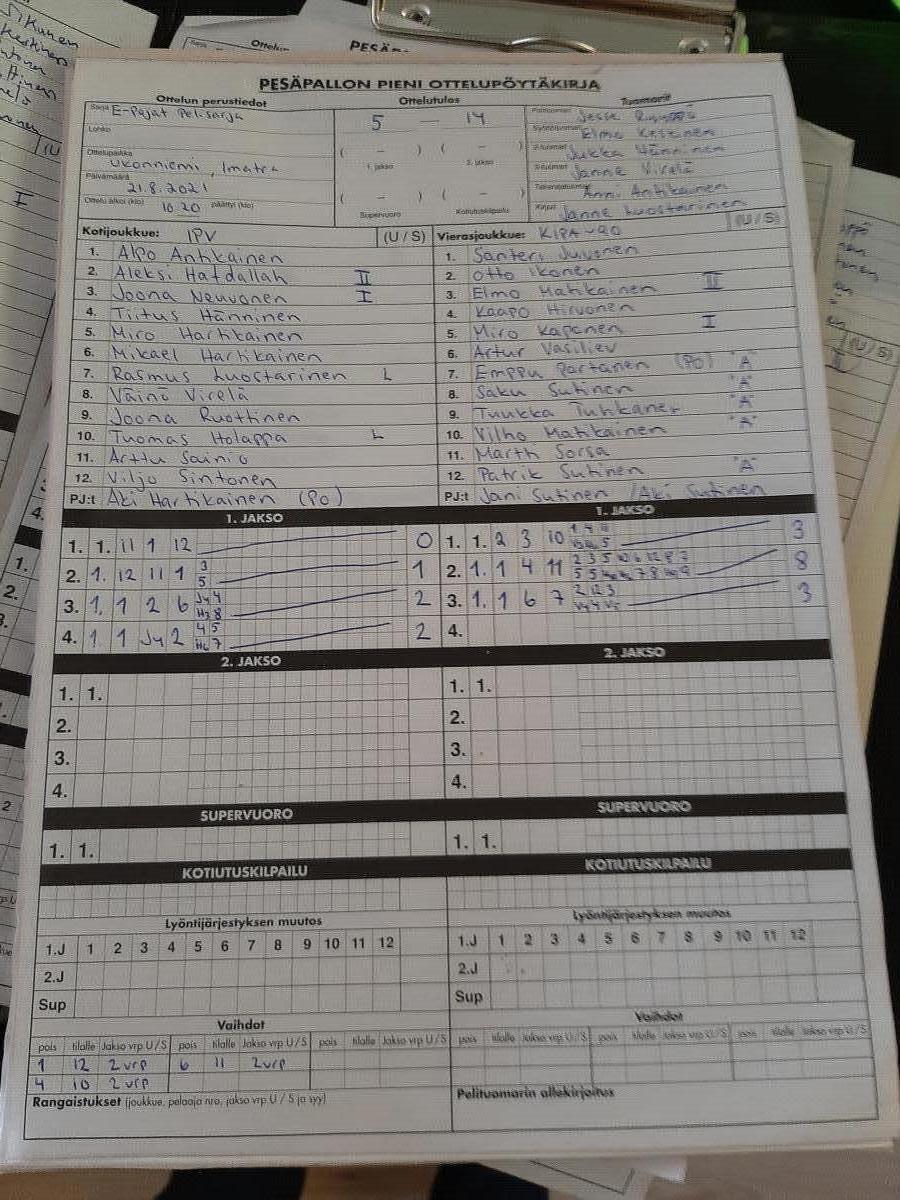 PESÄPALLON PIENI OTTELUPÖYTÄKIRJA
Ottelun perustiedot
Ottelutulos
Tuomarit
Sarja E-Pojat Pel.sarja
5 — 14
Lohko
Ottelupaikka
Ukonniemi, Imatra
Päivämäärä
21.8.2021
Ottelu alkoi (klo) 10.20 päättyi (klo)
( – ) ( – )
1. jakso 2. jakso
( – ) ( – )
Supervuoro Kotiutuskilpailu
Pelituomari Jesse
Syöttötuomari Elmo Keskinen
2-tuomari Jukka Hänninen
3-tuomari Janne Virelä
Takarajatuomari Anni Antikainen
Kirjuri Janne Luostarinen
Kotijoukkue: IPV (U / S)
1. Alpo Antikainen
2. Aleksi Hafdallah II
3. Joona Neuvonen I
4. Tiitus Hänninen
5. Miro Hartikainen
6. Mikael Hartikainen
7. Rasmus Luostarinen L
8. Väinö Virelä
9. Joona Ruottinen
10. Tuomas Holappa L
11. Arttu Sainio
12. Viljo Sintonen
PJ:t Aki Hartikainen (Po)
Vierasjoukkue: KIPA-90 (U / S)
1. Santeri Juvonen
2. Otto Ikonen
3. Elmo Matikainen II
4. Kaapo Hirvonen
5. Miro Kaponen I
6. Artur Vasiliev
7. Emppu Partanen (Po) "A"
8. Saku Sutinen "A"
9. Tuukka Tuhkanen "A"
10. Vilho Matikainen "A"
11. Martti Sorsa
12. Patrik Sutinen "A"
PJ:t Jani Sutinen / Aki Sutinen
1. JAKSO
1. 1. 11 1 12 0
2. 1. 12 11 1 3 5 1
3. 1. 1 2 6 Jy4 H38 2
4. 1. 1 Jy 2 4 5 H67 2
1. JAKSO
1. 1. 2 3 10 3
2. 1. 1 4 11 8
3. 1. 1 6 7 3
4.
2. JAKSO
1. 1.
2.
3.
4.
2. JAKSO
1. 1.
2.
3.
4.
SUPERVUORO
1. 1.
SUPERVUORO
1. 1.
KOTIUTUSKILPAILU
KOTIUTUSKILPAILU
Lyöntijärjestyksen muutos
1.J 1 2 3 4 5 6 7 8 9 10 11 12
2.J
Sup
Lyöntijärjestyksen muutos
1.J 1 2 3 4 5 6 7 8 9 10 11 12
2.J
Sup
Vaihdot
pois tilalle Jakso vrp U / S pois tilalle Jakso vrp U / S pois tilalle Jakso vrp U / S
1 12 2 vrp 6 11 2 vrp
4 10 2 vrp
Vaihdot
pois tilalle Jakso vrp U / S pois tilalle Jakso vrp U / S pois tilalle Jakso vrp U / S
Rangaistukset (joukkue, pelaaja nro, jakso vrp U / S ja syy)
Pelituomarin allekirjoitus